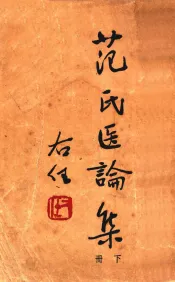 范氏医論集
下冊
右任